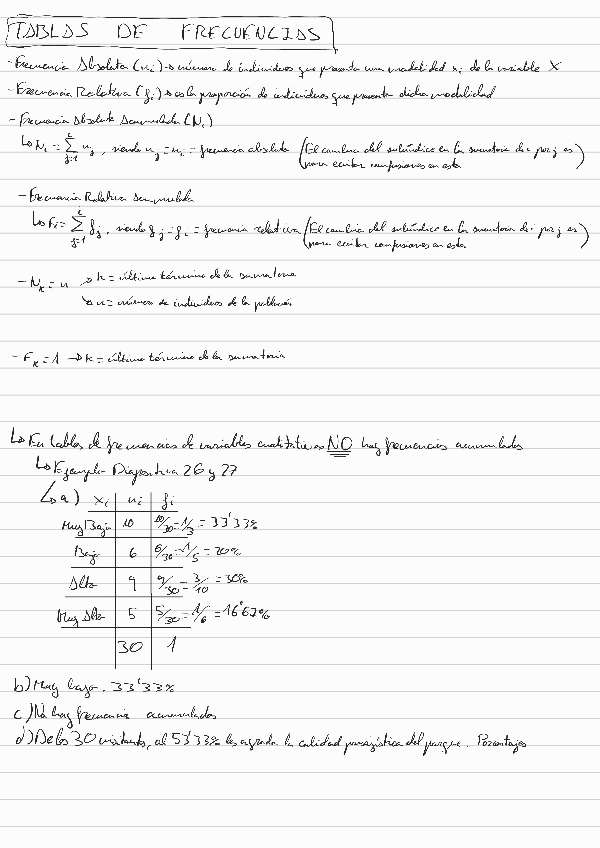 TABLAS DE FRECUENCIAS
- Frecuencia Absoluta (ni) → número de individuos que presenta una modalidad xi de la variable X
- Frecuencia Relativa (fi) → es la proporción de individuos que presenta dicha modalidad
- Frecuencia Absoluta Acumulada (Ni)
↳ Ni = Σ(j=1, i) nj, siendo nj = ni = frecuencia absoluta (El cambio del subíndice en la sumatoria de i por j es para evitar confusiones en esta)
- Frecuencia Relativa Acumulada
↳ Fi = Σ(j=1, i) fj, siendo fj = fi = frecuencia relativa (El cambio del subíndice en la sumatoria de i por j es para evitar confusiones en esta)
- Nk = n → k = último término de la sumatoria
↘ n = número de individuos de la población
- Fk = 1 → k = último término de la sumatoria
↳ En tablas de frecuencias de variables cualitativas NO hay frecuencias acumuladas
↳ Ejemplo Diapositiva 26 y 27
↳ a) xi | ni | fi
Muy Baja | 10 | 10/30 = 1/3 = 33'33%
Baja | 6 | 6/30 = 1/5 = 20%
Alta | 9 | 9/30 = 3/10 = 30%
Muy Alta | 5 | 5/30 = 1/6 = 16'67%
30 | 1
b) Muy baja. 33'33%
c) No hay frecuencia acumulados
d) De los 30 visitantes, al 53'33% les agrada la calidad paisajística del parque.